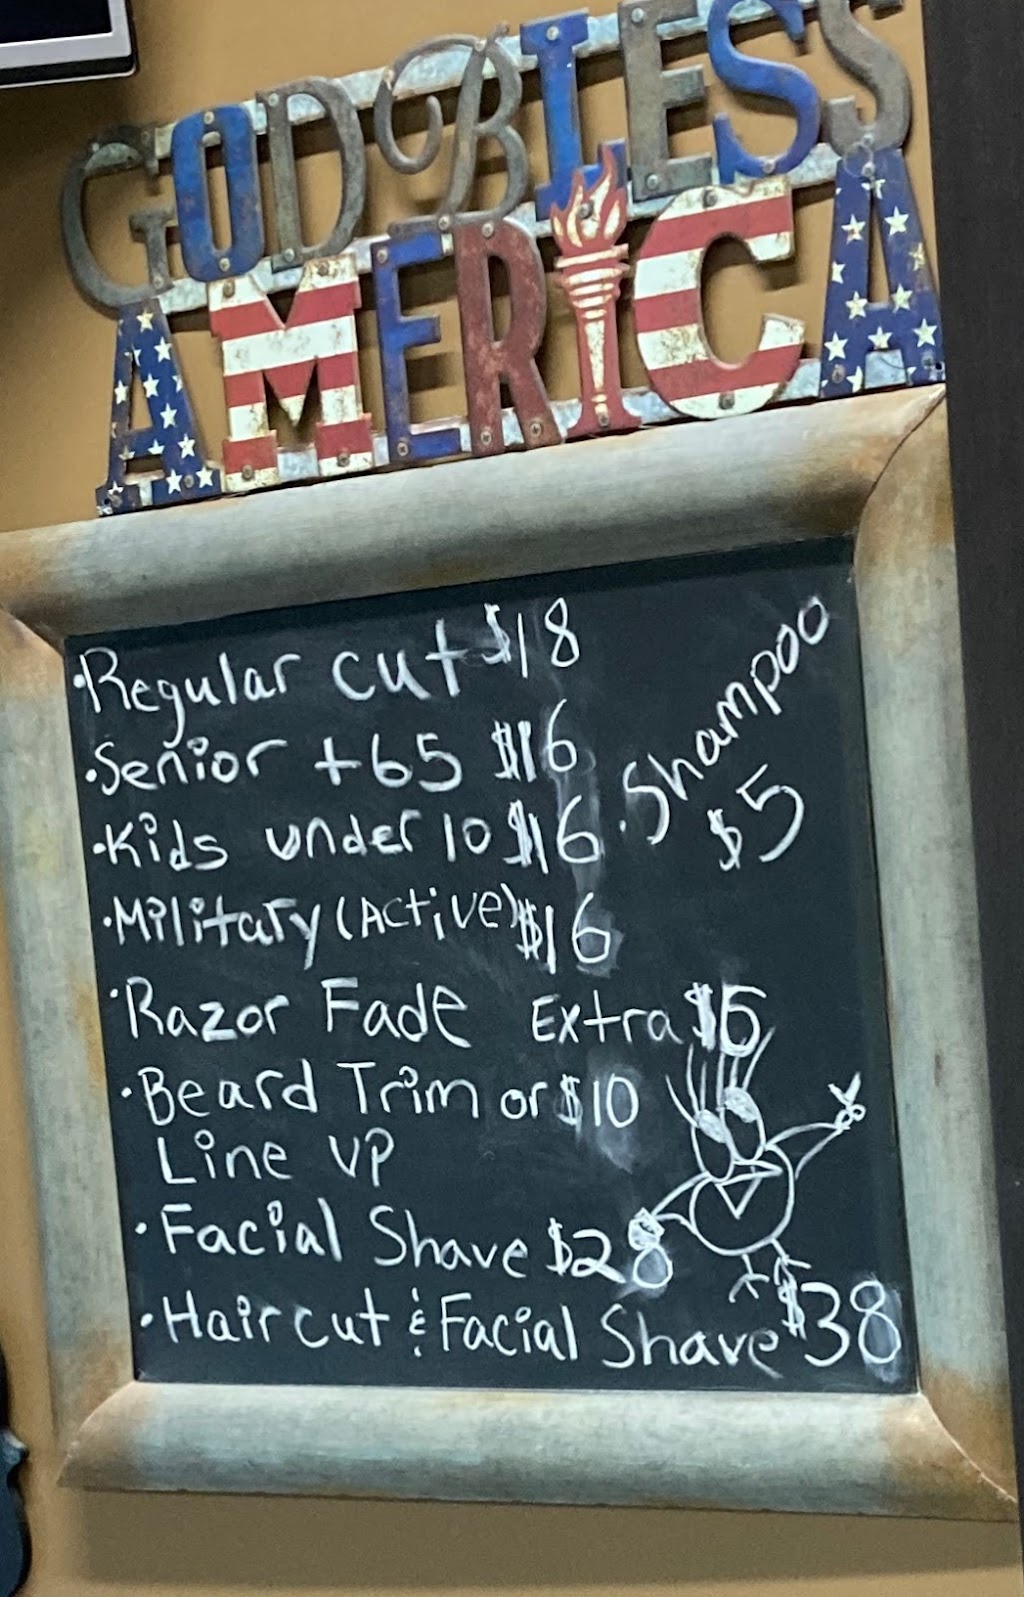 GOD BLESS
AMERICA
•Regular cut $18
•Senior +65 $16
•Kids under 10 $16
•Military (Active) $16
•Razor Fade Extra
•Beard Trim or $10
Line up
•Facial Shave $28
•Haircut & Facial Shave $38
•Shampoo
$5